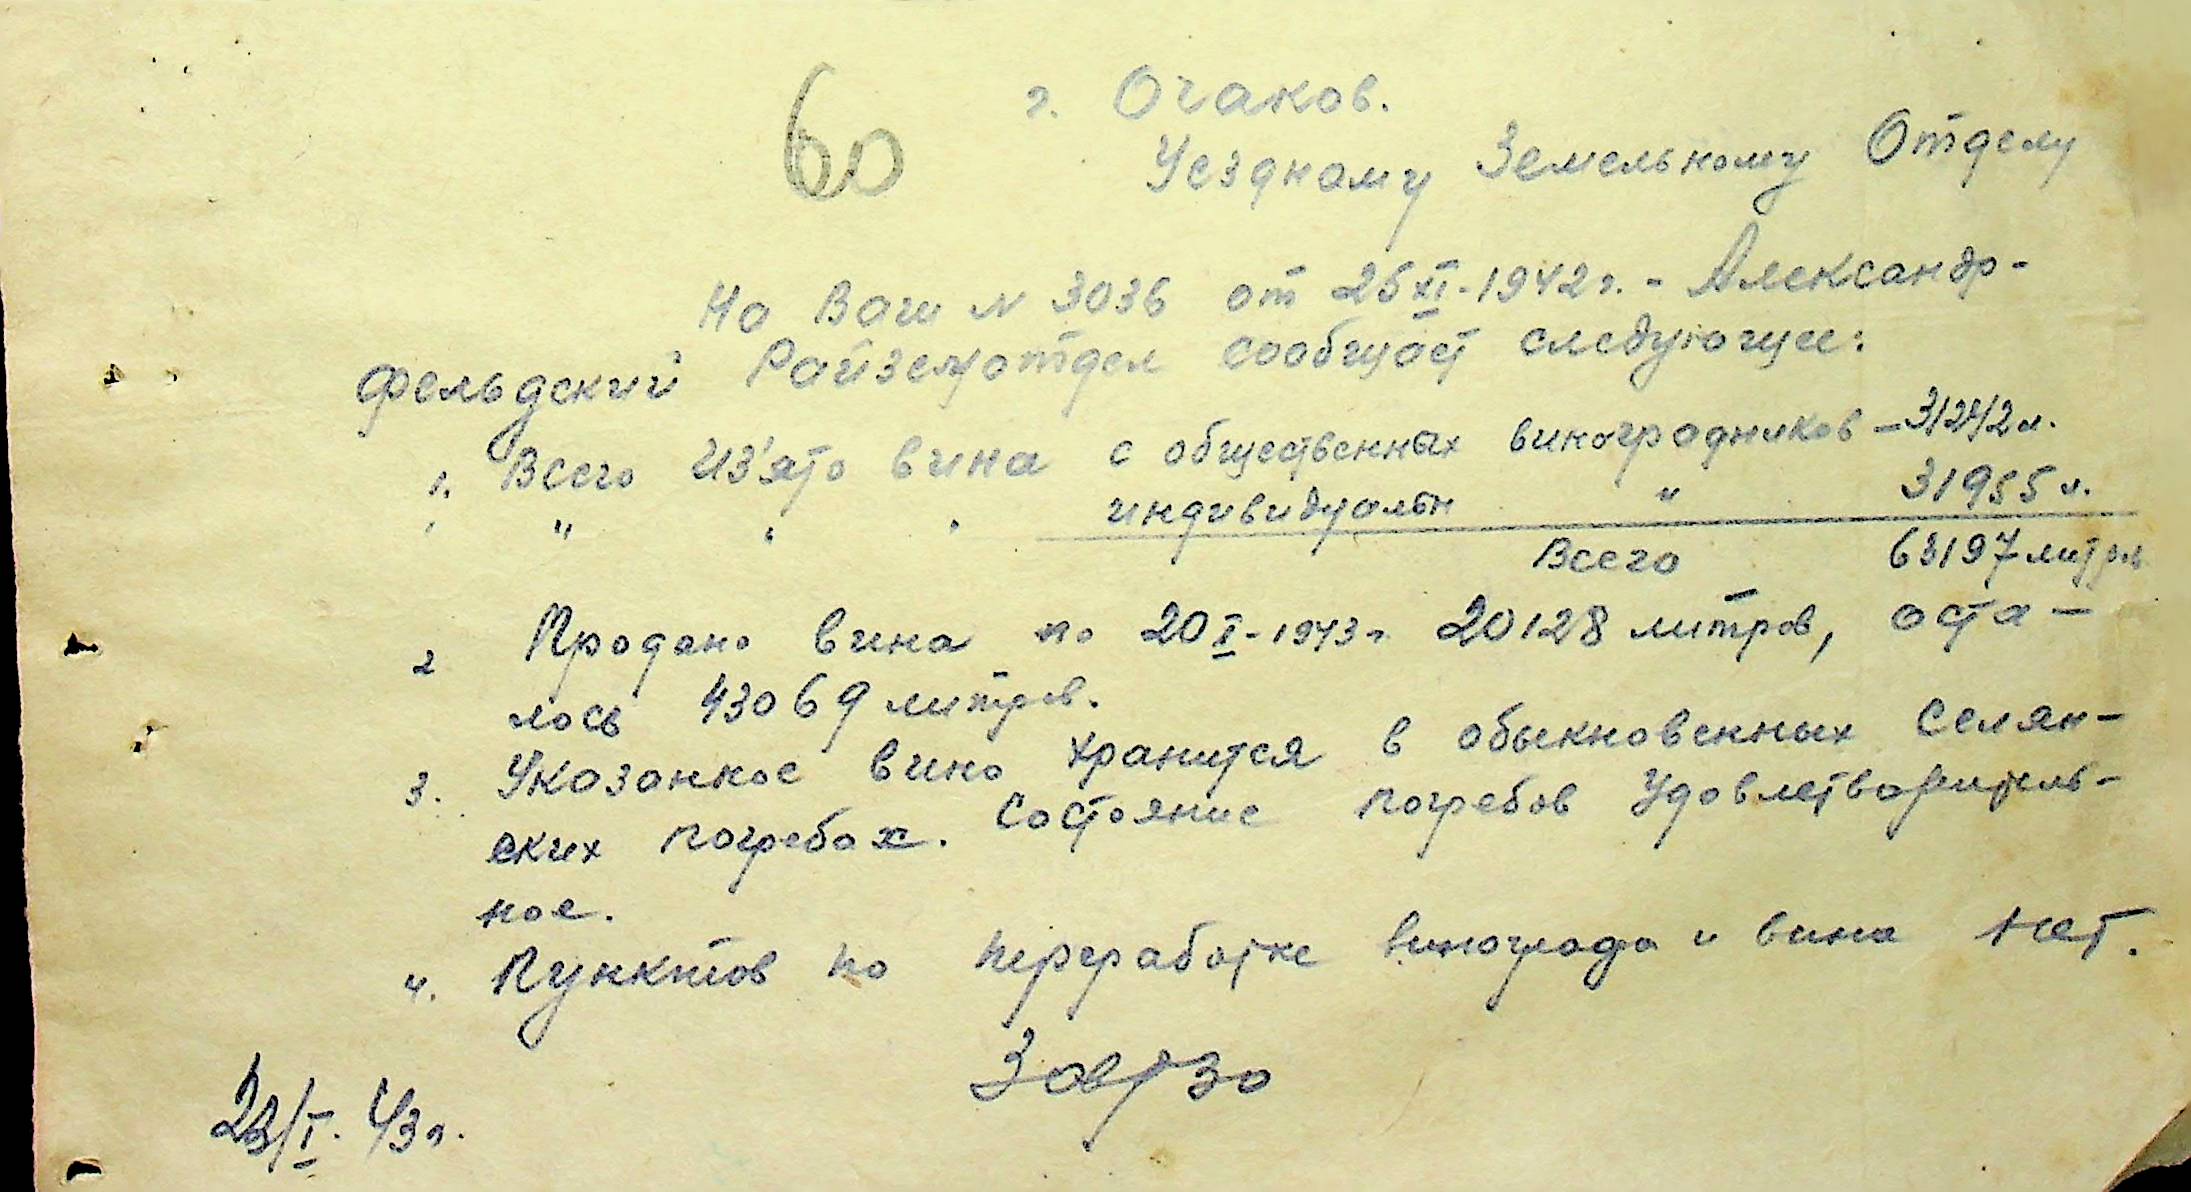 60
г. Очаков.
Уездному Земельному Отделу
На Ваш № 3036 от 25 XI-1942 г. - Александр-
фельдский Райземотдел сообщает следующее:
1. Всего из'ято вина с общественных виноградников - 31242 л.
" " " " индивидуальн " 31955 л.
Всего 63197 литров
2 Продано вина по 20 I - 1943 г. 20128 литров, оста-
лось 43069 литров.
3. Указанное вино хранится в обыкновенных селян-
ских погребах. Состояние погребов удовлетворитель-
ное.
4. Пунктов по переработке винограда и вина нет.
ЗавРЗО
23/I. 43 г.